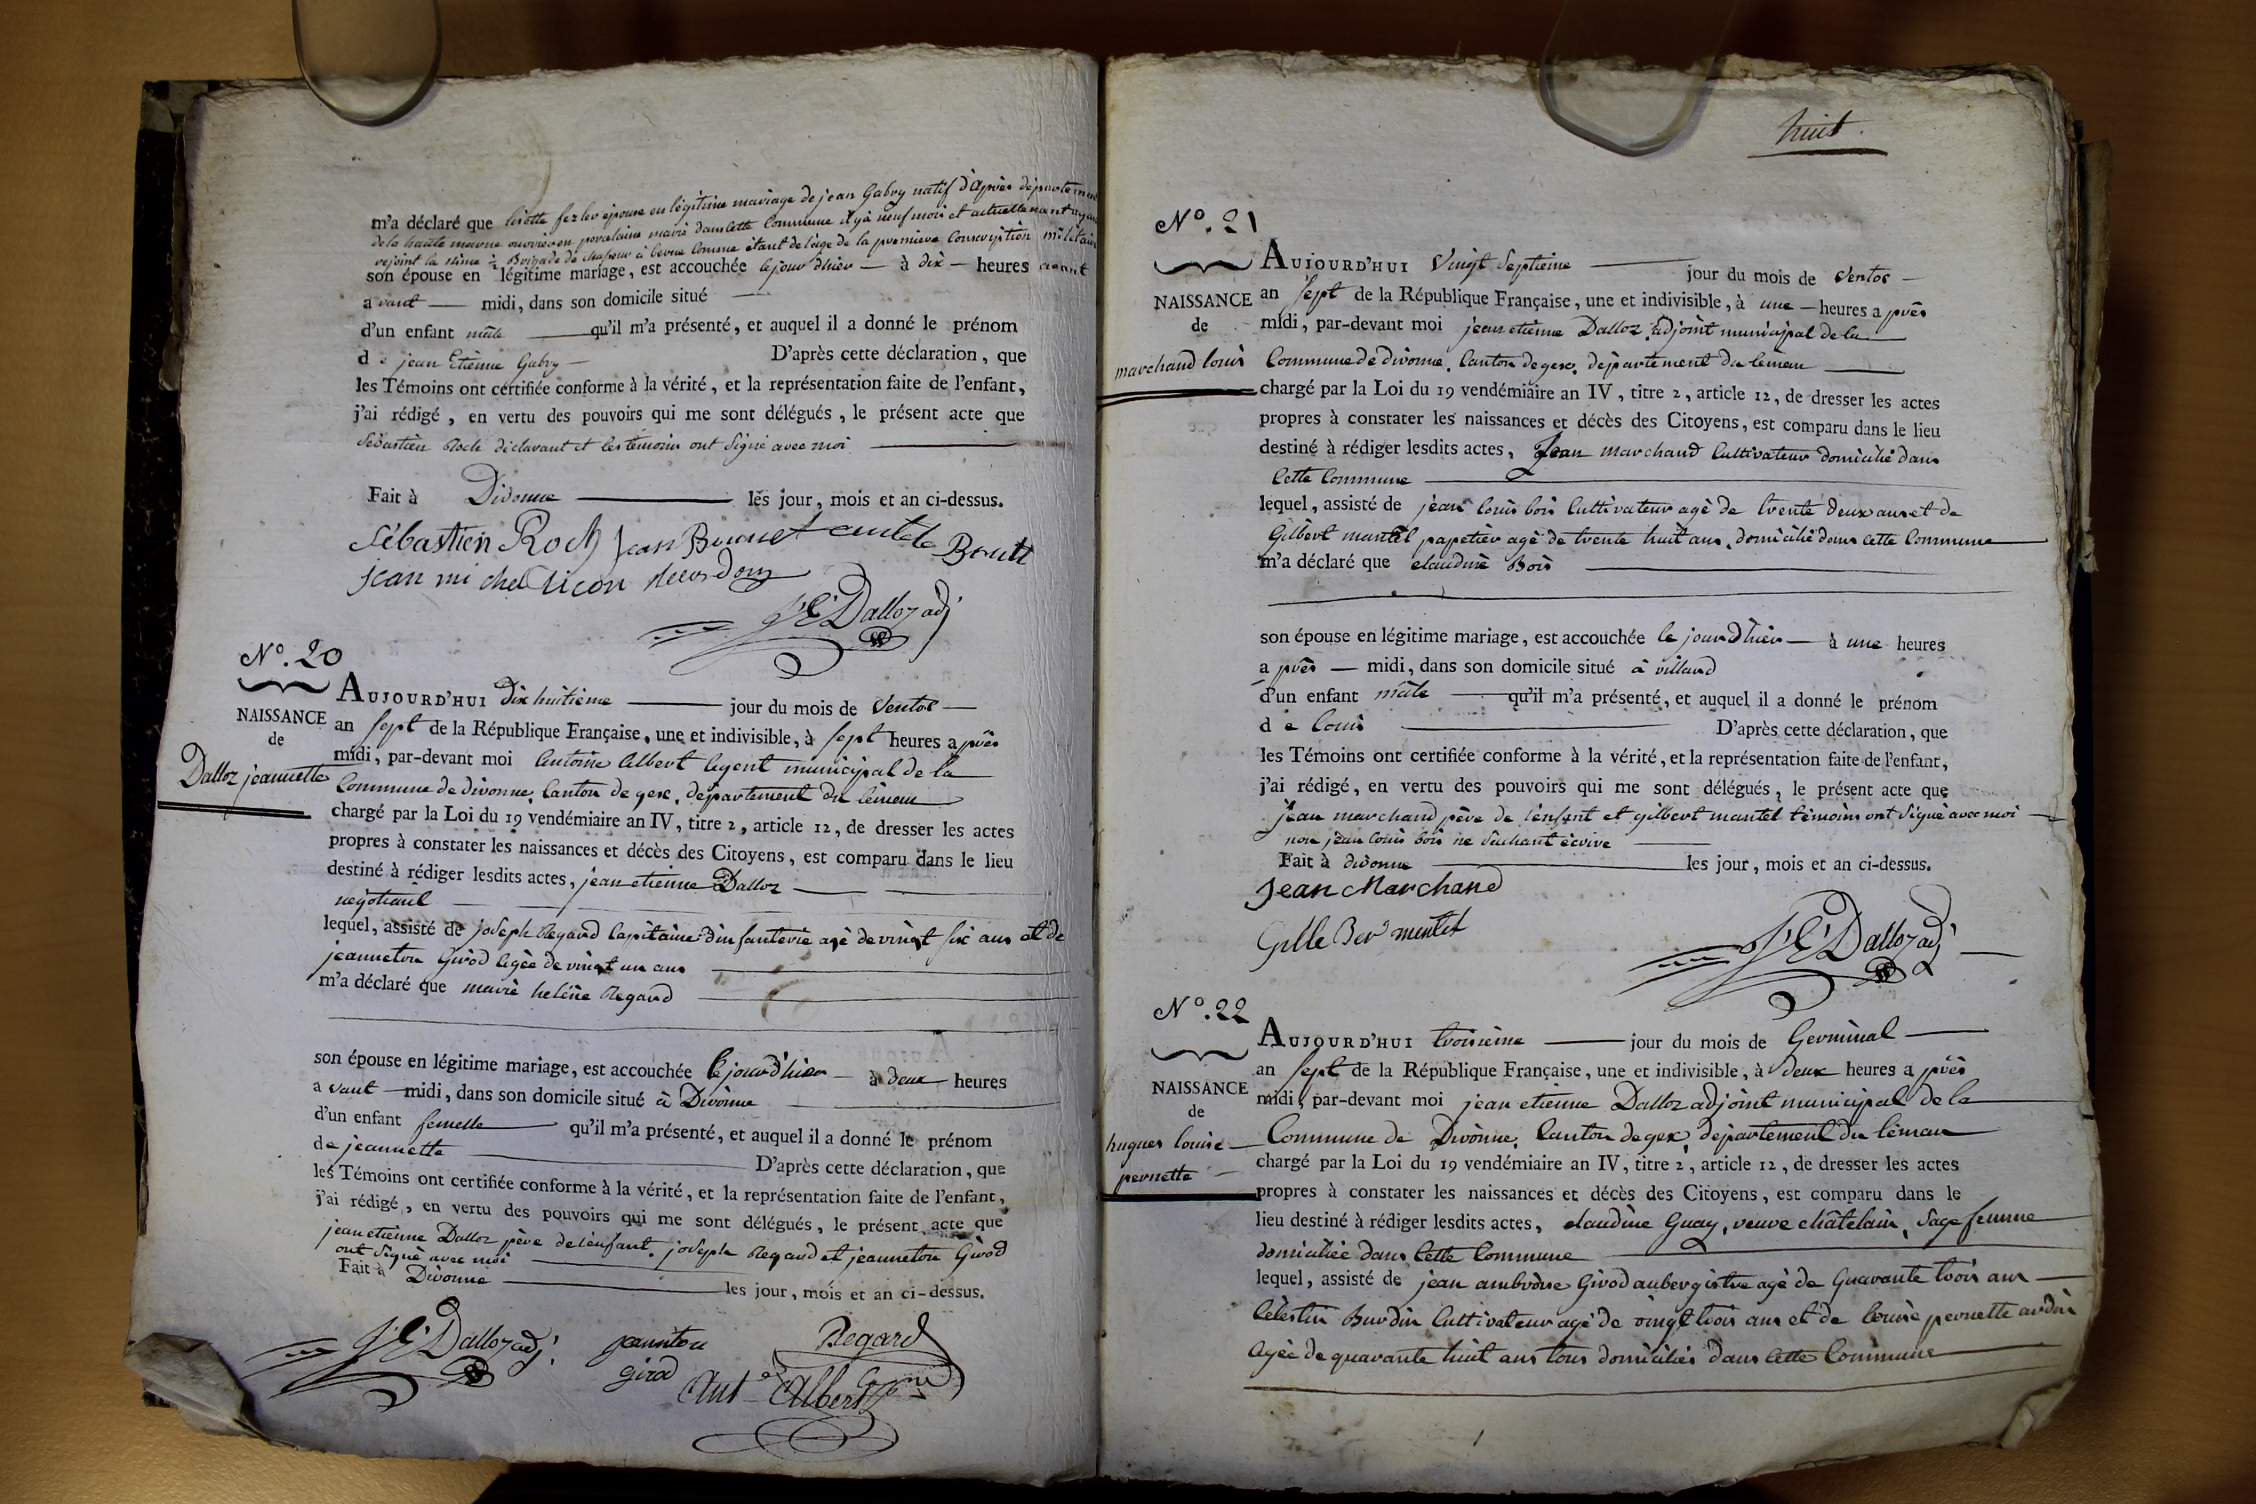 m'a déclaré que lisette fezler épouse en légitime mariage de jean Gabry natif d'après département
de la haute marne ouvrier en porcelaine marié dans cette Commune il y a neuf mois et actuellement ayant
rejoint la 8ième ½ Brigade de chasseur à berne comme étant de l'âge de la première Conscription militaire
son épouse en légitime mariage, est accouchée le jour dhier — à dix — heures avant
a vant — midi, dans son domicile situé —
d'un enfant mâle — qu'il m'a présenté, et auquel il a donné le prénom
de jean Etienne Gabry — D'après cette déclaration, que
les Témoins ont certifiée conforme à la vérité, et la représentation faite de l'enfant,
j'ai rédigé, en vertu des pouvoirs qui me sont délégués, le présent acte que
Sébastien Roch déclarant et les témoins ont Signé avec moi —
Fait à Divonne — les jour, mois et an ci-dessus.
Sébastien Roch Jean Bonnet
Jean michel
J. E. Dalloz adj
N°. 20
NAISSANCE
de
Dalloz jeannette
AUJOURD'HUI Dix huitieme — jour du mois de Ventos —
an Sept de la République Française, une et indivisible, à Sept heures a près
midi, par-devant moi Antoine Albert Agent municipal de la
Commune de divonne, Canton de gex, département du léman
chargé par la Loi du 19 vendémiaire an IV, titre 2, article 12, de dresser les actes
propres à constater les naissances et décès des Citoyens, est comparu dans le lieu
destiné à rédiger lesdits actes, jean etienne Dalloz —
négotiant —
lequel, assisté de joseph Regard Capitaine dinfanterie agé de vingt six ans et de
jeanneton Girod Agée de vingt un ans —
m'a déclaré que marie heléne Regard —
son épouse en légitime mariage, est accouchée le jour d'hier — à deux heures
a vant — midi, dans son domicile situé à Divonne —
d'un enfant femelle — qu'il m'a présenté, et auquel il a donné le prénom
de jeannette — D'après cette déclaration, que
les Témoins ont certifiée conforme à la vérité, et la représentation faite de l'enfant,
j'ai rédigé, en vertu des pouvoirs qui me sont délégués, le présent acte que
jean etienne Dalloz père de lenfant, joseph Regard et jeanneton Girod
ont Signé avec moi —
Fait à Divonne — les jour, mois et an ci-dessus.
J. E. Dalloz adj. jeanniton Regard
girod Ant. Albert
huit.
N°. 21
NAISSANCE
de
marchand louis
AUJOURD'HUI Vingt Septieme — jour du mois de Ventos —
an Sept de la République Française, une et indivisible, à une — heures a près
midi, par-devant moi jean etienne Dalloz, adjoint municipal de la
Commune de divonne, Canton de gex, département du léman —
chargé par la Loi du 19 vendémiaire an IV, titre 2, article 12, de dresser les actes
propres à constater les naissances et décès des Citoyens, est comparu dans le lieu
destiné à rédiger lesdits actes, Jean marchand Cultivateur domicilié dans
Cette Commune —
lequel, assisté de jean louis bois Cultivateur agé de trente deux ans et de
Gilbert mantel papetier agé de trente huit ans, domicilié dans cette Commune
m'a déclaré que claudine Bois —
son épouse en légitime mariage, est accouchée le jour d'hier — à une heures
a près — midi, dans son domicile situé à villard
d'un enfant mâle — qu'il m'a présenté, et auquel il a donné le prénom
de louis — D'après cette déclaration, que
les Témoins ont certifiée conforme à la vérité, et la représentation faite de l'enfant,
j'ai rédigé, en vertu des pouvoirs qui me sont délégués, le présent acte que
jean marchand père de lenfant et gilbert mantel témoins ont Signé avec moi —
non jean louis bois ne Sachant écrire —
Fait à divonne — les jour, mois et an ci-dessus.
Jean Marchand
Gille Ber mentel
J. E. Dalloz adj —
N°. 22
NAISSANCE
de
hugues louise —
pernette —
AUJOURD'HUI troisieme — jour du mois de Germinal —
an Sept de la République Française, une et indivisible, à deux heures a près
midi, par-devant moi jean etienne Dalloz adjoint municipal de la
Commune de Divonne, Canton de gex, département du léman
chargé par la Loi du 19 vendémiaire an IV, titre 2, article 12, de dresser les actes
propres à constater les naissances et décès des Citoyens, est comparu dans le
lieu destiné à rédiger lesdits actes, claudine Guay, veuve châtelain, Sage femme
domiciliée dans Cette Commune —
lequel, assisté de jean ambroise Girod aubergistre agé de Quarante trois ans —
Célestin Burdin Cultivateur agé de vingt trois ans et de louise pernette
Agée de quarante huit ans tous domiciliés dans Cette Commune —